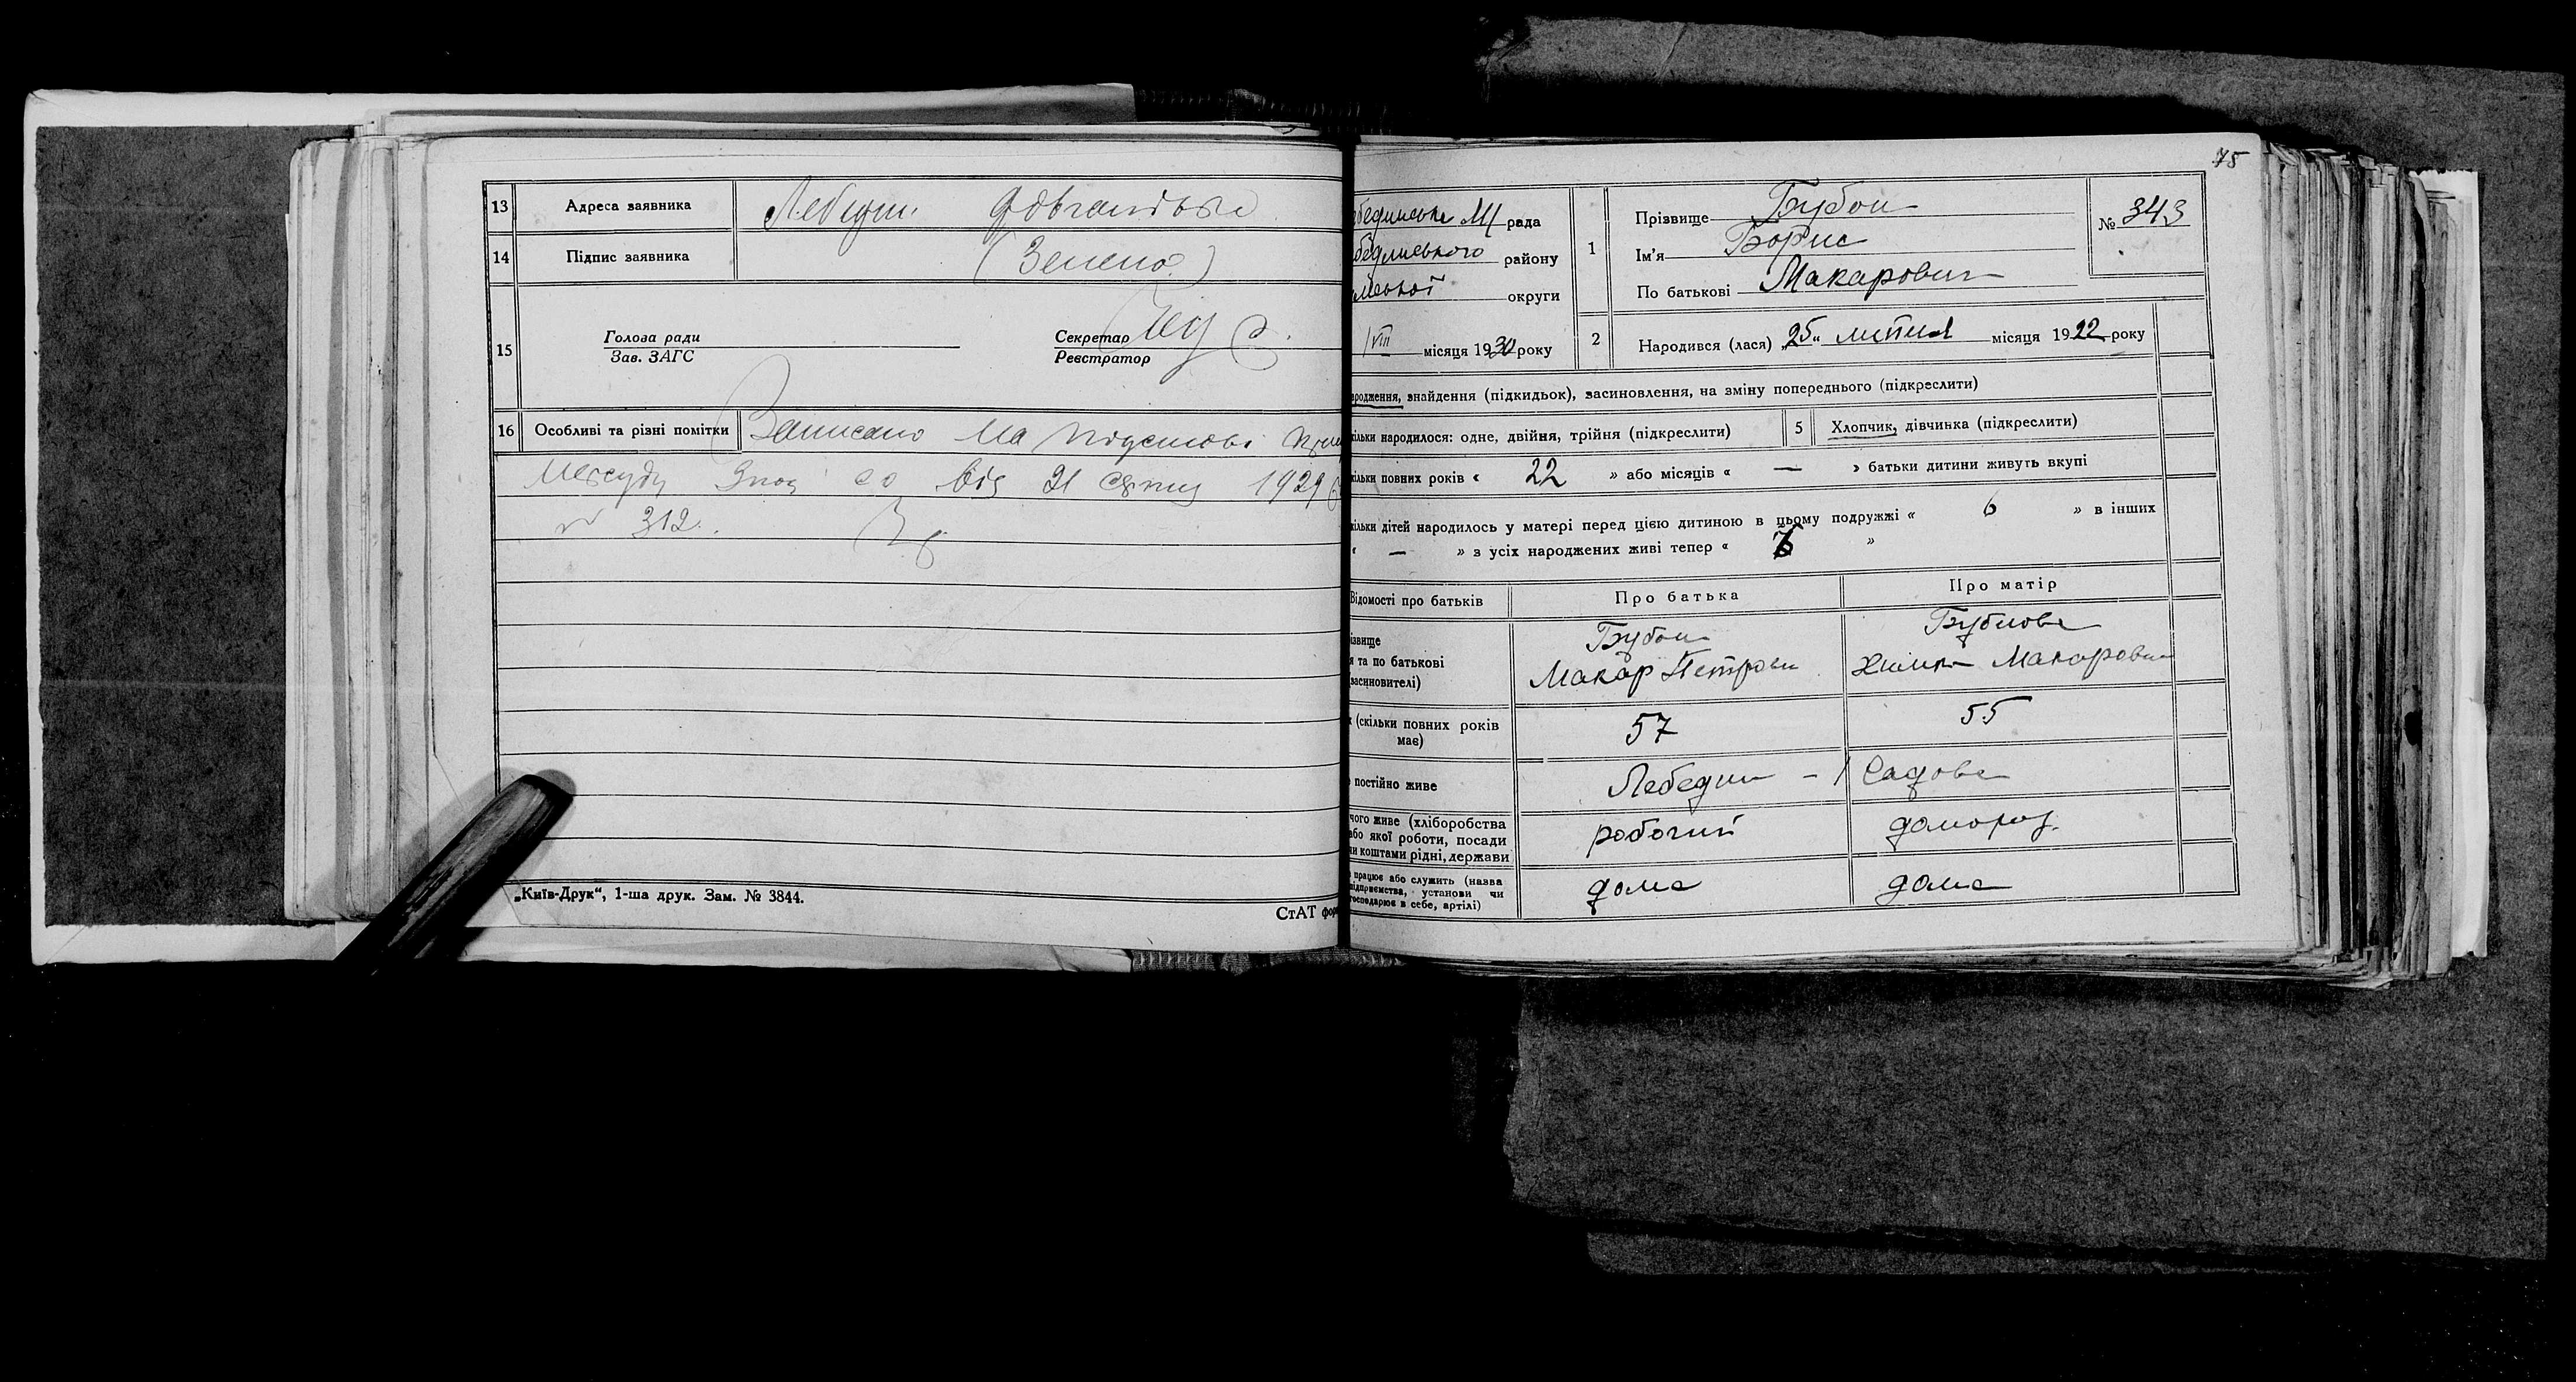 13 Адреса заявника Лебедин.
14 Підпис заявника
15 Голова ради Секретар
Зав. ЗАГС Реєстратор
16 Особливі та різні помітки Записано на підставі
від 21 1929
№ 312.
„Київ-Друк“, 1-ша друк. Зам. № 3844.
СтАТ фор
75
бединська М/ рада
бединського району
мської округи
/VIII місяця 1930 року
1 Прізвище Бубон
Ім'я Борис
По батькові Макарович
№ 343
2 Народився (лася) „25„ липня місяця 1922 року
ародження, знайдення (підкидьок), засиновлення, на зміну попереднього (підкреслити)
кільки народилося: одне, двійня, трійня (підкреслити) 5 Хлопчик, дівчинка (підкреслити)
кільки повних років « 22 » або місяців « — » батьки дитини живуть вкупі
кільки дітей народилось у матері перед цією дитиною в цьому подружжі « 6 » в інших
« — » з усіх народжених живі тепер « »
Відомості про батьків Про батька Про матір
ізвище Бубон Бубнова
я та по батькові Макар Петрович Макаровн
засиновителі)
к (скільки повних років 57 55
має)
е постійно живе Лебедин - / Садова
чого живе (хліборобства робочий
або якої роботи, посади
чи коштами рідні, держави
працює або служить (назва дома дома
підприємства, установи чи
господарює в себе, артілі)